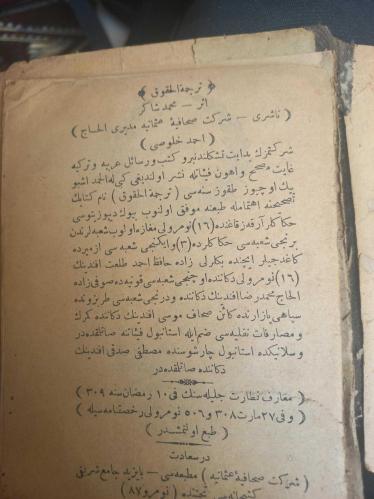 ﴿ ترجمة الحقوق ﴾
اثر — محمد شاكر
( ناشرى — شركت صحافيهٔ عثمانيه مديرى الحاج )
( احمد خلوصى )
شركتمزك بدايت تشكلندنبرو كتب ورسائل عربيه وتركيه
غايت مصحح واهون فيئاتله نشر اولنديغى كبى له الحمد اشبو
بيك اوچيوز طقوز سنه سى ( ترجمة الحقوق ) نام كتابك
تصحيحنه اهتمامله طبعنه موفق اولنوب بيوك ديپوزيتوسى
حكاكلر آرقه زقاغنده (١٦) نومرولى مغازه اولوب شعبه لرندن
برنجى شعبه سى حكاكلرده (٣) وايكنجى شعبه سى ازميرده
كاغدجيلر ايچنده بكلرلى زاده حافظ احمد طلعت افندينك
(١٦) نومرولى دكاننده اوچنجى شعبه سى قونيه ده صوفى زاده
الحاج محمد رضا افندينك دكاننده ودرنجى شعبه سى طربزونده
سپاهى بازارنده كائن صحاف موسى افندينك دكاننده كمرك
ومصارفات نقليه سى ضم ايله استانبول فيئاتنه صاتلمقده در
وسلانيكده استانبول چارشوسنده مصطفى صدقى افندينك
دكاننده صاتلمقده در
( معارف نظارت جليله سنك فى ١٠ رمضان سنه ٣٠٩ )
( وفى ٢٧ مارت ٣٠٨ و ٥٠٦ نومرولى رخصتنامه سيله )
( طبع اولنمشدر )
درسعادت
( شركت صحافيهٔ عثمانيه ) مطبعه سى — بايزيد جامع شريفى
كتبخانه سى تحتنده ( نومرو ٨٧ )